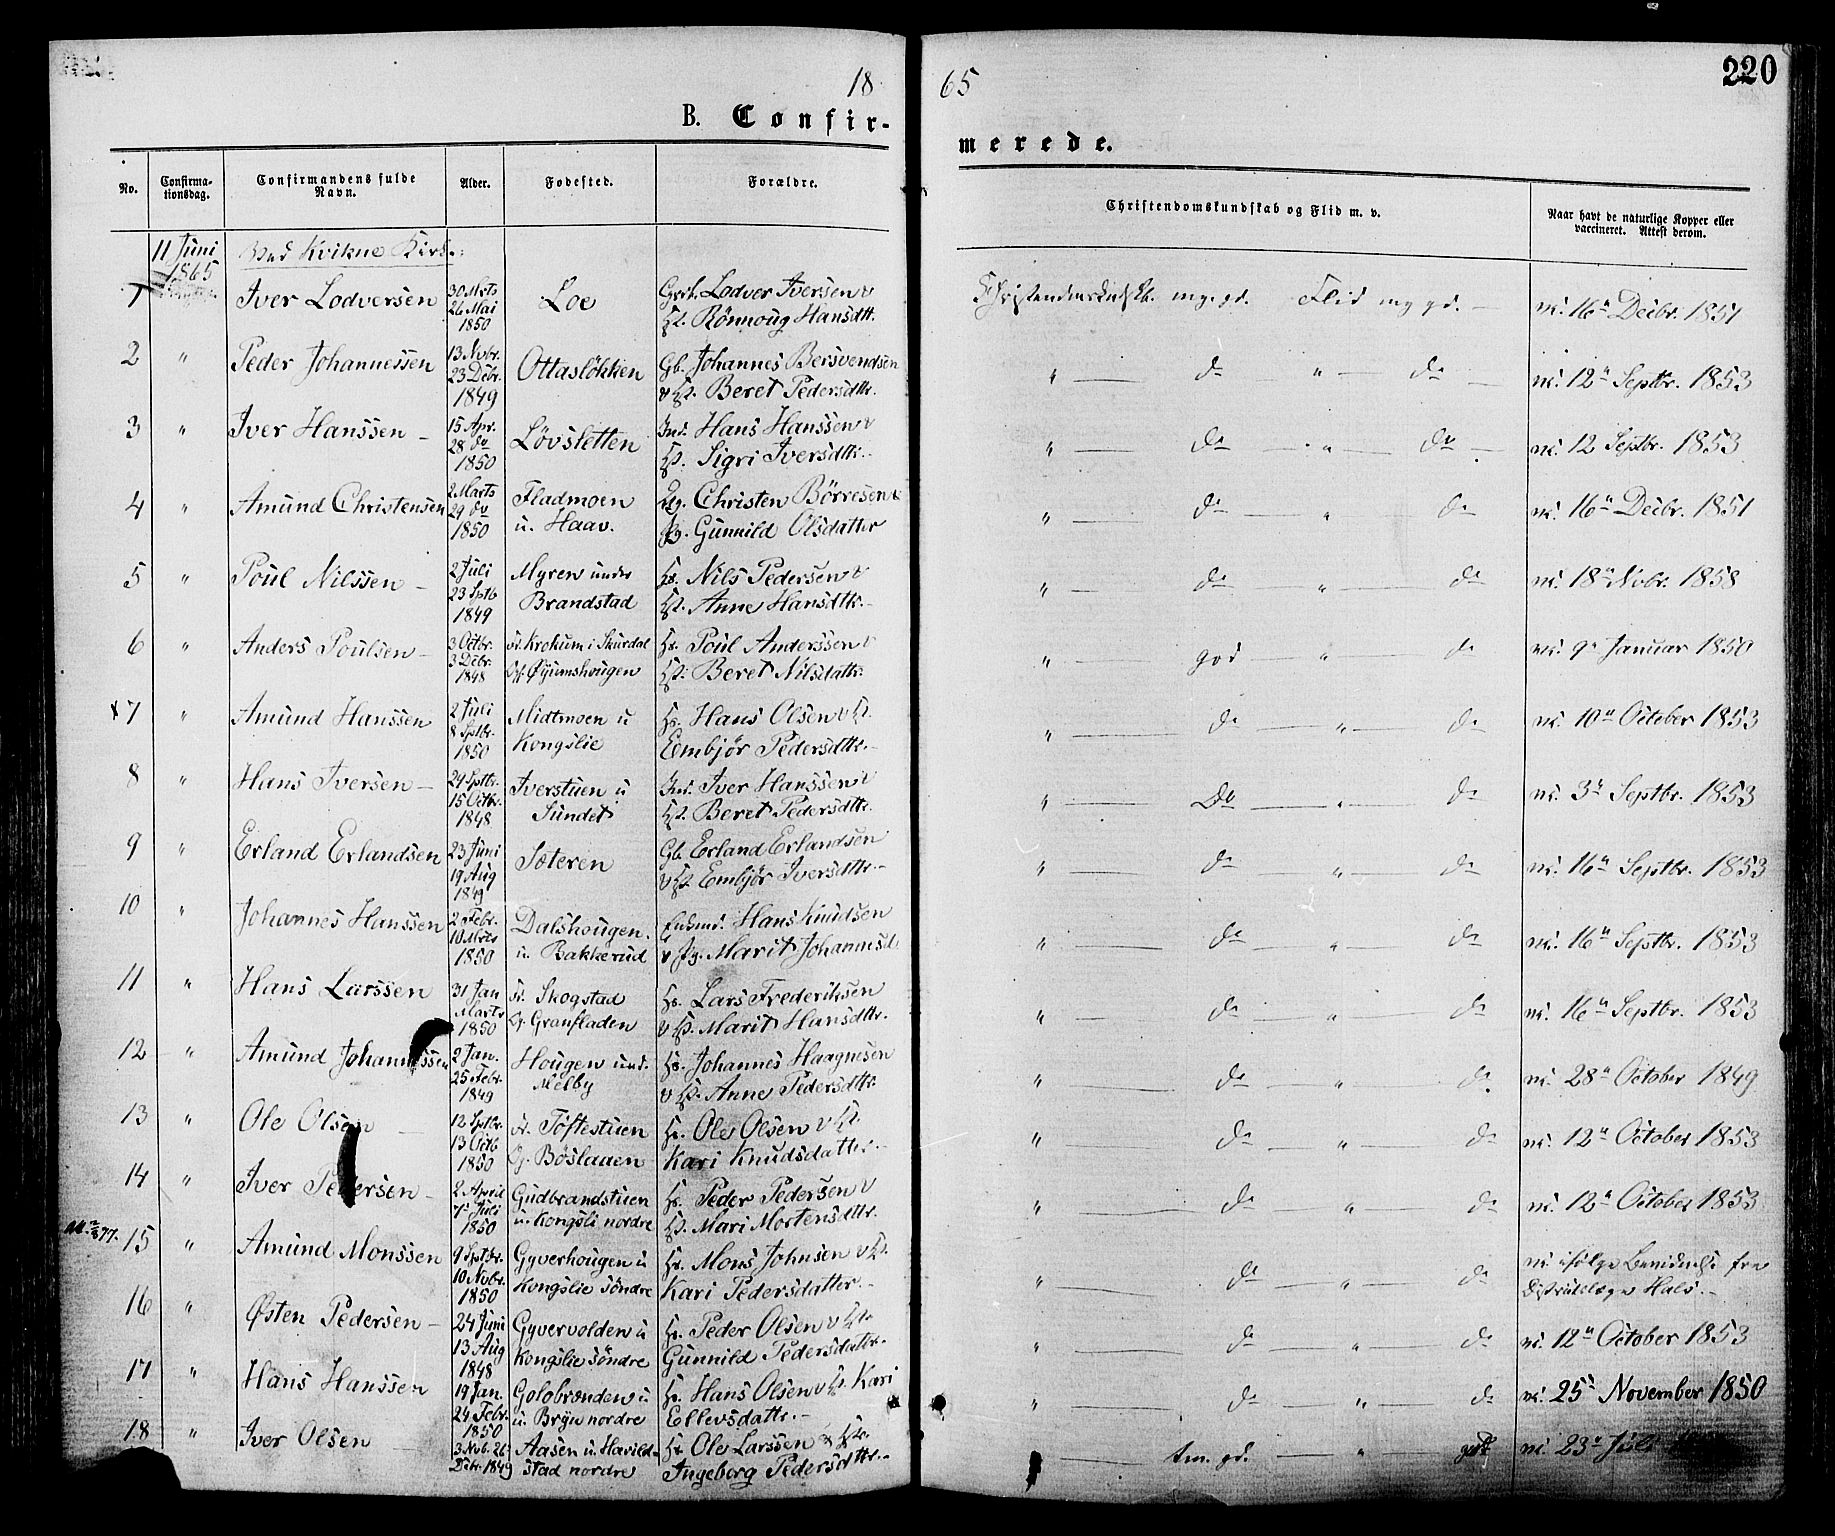 18 65
220
B. Confir-
merede.
No.
Confirma-
tionsdag.
Confirmandens fulde
Navn.
Alder.
Fødested.
Forældre.
Christendomskundskab og Flid m. v.
Naar havt de naturlige Kopper eller
vaccineret. Attest derom.
11 Juni
1865
Ved Kvikne Kirk.:
1 Iver Lodversen
30 Mrts
26 Mai
1850
Loe
Lodver Iversen v
Rönnoug Hansdtr.
Christendomskundskb. mg. gd. Flid mg gd. —
vc. 16de Decbr. 1851
2 " Peder Johannessen
13 Nvbr.
23 Debr.
1849
Ottasløkken
Gb. Johannes Bersvendsen
v Beret Pedersdtr.
" — do — " — do —
vc. 12te Septbr. 1853
3 " Iver Hanssen —
15 Apr.
28 do
1850
Lövsletten
Ind. Hans Hanssen v
Sigri Iversdtr.
" — do — " — do —
vc. 12 Septbr. 1853
4 " Amund Christensen
2 Marts
29 do
1850
Fladmoen
u. Haav.
Christen Börresen v
Gunnild Olsdatter
" — do — " — do
vc. 16de Decbr. 1851
5 " Poul Nilssen —
2 Juli
23 Sptb
1849
Myren under
Brandstad
Hs. Nils Pedersen v
Anne Hansdtr.
" — do — " — do
vc. 18de Nvbr. 1858
6 " Anders Poulsen —
3 Octbr.
3 Debr.
1848
Krokum i Skurdal
Øyumshougen
Hs. Poul Anderssen v
Beret Nilsdattr.
" — god — " — do
vc. 9de Januar 1850
x 7 " Amund Hanssen
2 Juli
8 Sptbr.
1850
Midtmoen u
Kongslie
Hs. Hans Olsen v
Eembjør Pedersdtr.
" — do — " — do
vc. 10de October 1853
8 " Hans Iversen —
24 Sptbr.
15 Octbr.
1848
Iverstuen u
Sundet
Ind. Iver Hanssen v
Beret Pedersdtr.
" — Do — " — do
vc. 3de Septbr. 1853
9 " Erland Erlandsen
23 Juni
19 Aug
1849
Sæteren
Gb. Erland Erlandsen
v Embjør Iversdtr.
" — do — " — do
vc. 16de Septbr. 1853
10 " Johannes Hanssen
2 Febr.
10 Mrts
1850
Dalshougen.
u. Bakkerud
Hans Knudsen
v Marit Johannesd.
" — do — " — do
vc. 16de Septbr. 1853
11 " Hans Larssen
31 Jan
Marts
1850
Skogstad
Granfladen
Hs. Lars Frederiksen
v Marit Hansdtr.
" — do — " — do
vc. 16de Septbr. 1853
12 " Amund Johannessen
2 Jan.
25 Febr.
1849
Hougen und.
Melby
Hs. Johannes Haagnesen
v Anne Pedersdtr.
" — do — " — do
vc. 28de October 1849
13 " Ole Olsen —
12 Sptbr.
13 Octb
1850
Töftestuen
Böslaaen
Hs. Ole Olsen v
Kari Knudsdatter
" — do — " — do
vc. 12te October 1853
14 " Iver Pedersen —
2 April
7de Juli
1850
Gudbrandstuen
u. Kongsli nordre
Hs. Peder Pedersen v
Mari Mortensdtr.
" — do — " — do
vc. 12te October 1853
15 " Amund Monssen
9 Sptbr.
10 Nvbr.
1850
Gyverhougen u
Kongslie söndre
Hs. Mons Johnsen v
Kari Pedersdatter
" — do — " — do
vc. ifølge fra
Hals.
16 " Østen Pedersen —
24 Juni
13 Aug
1848
Gyvervolden u
Kongslie söndre
Hs. Peder Olsen v
Gunnild Pedersdatter
" — do — " — do
vc. 12te October 1853
17 " Hans Hanssen
19 Jan.
24 Febr.
1850
Golobrenden u
u. Bryn nordre
Hs. Hans Olsen v Kari
Ellevsdattr.
" — do — " — do
vc. 25de November 1850
18 " Iver Olsen —
3 Nvb. 26
Debr. 1849
Aasen u. Harild-
stad nordre
Hs. Ole Larssen
Ingeborg Pedersdttr.
— tm. gd. — " — godt
vc. 23de Juli